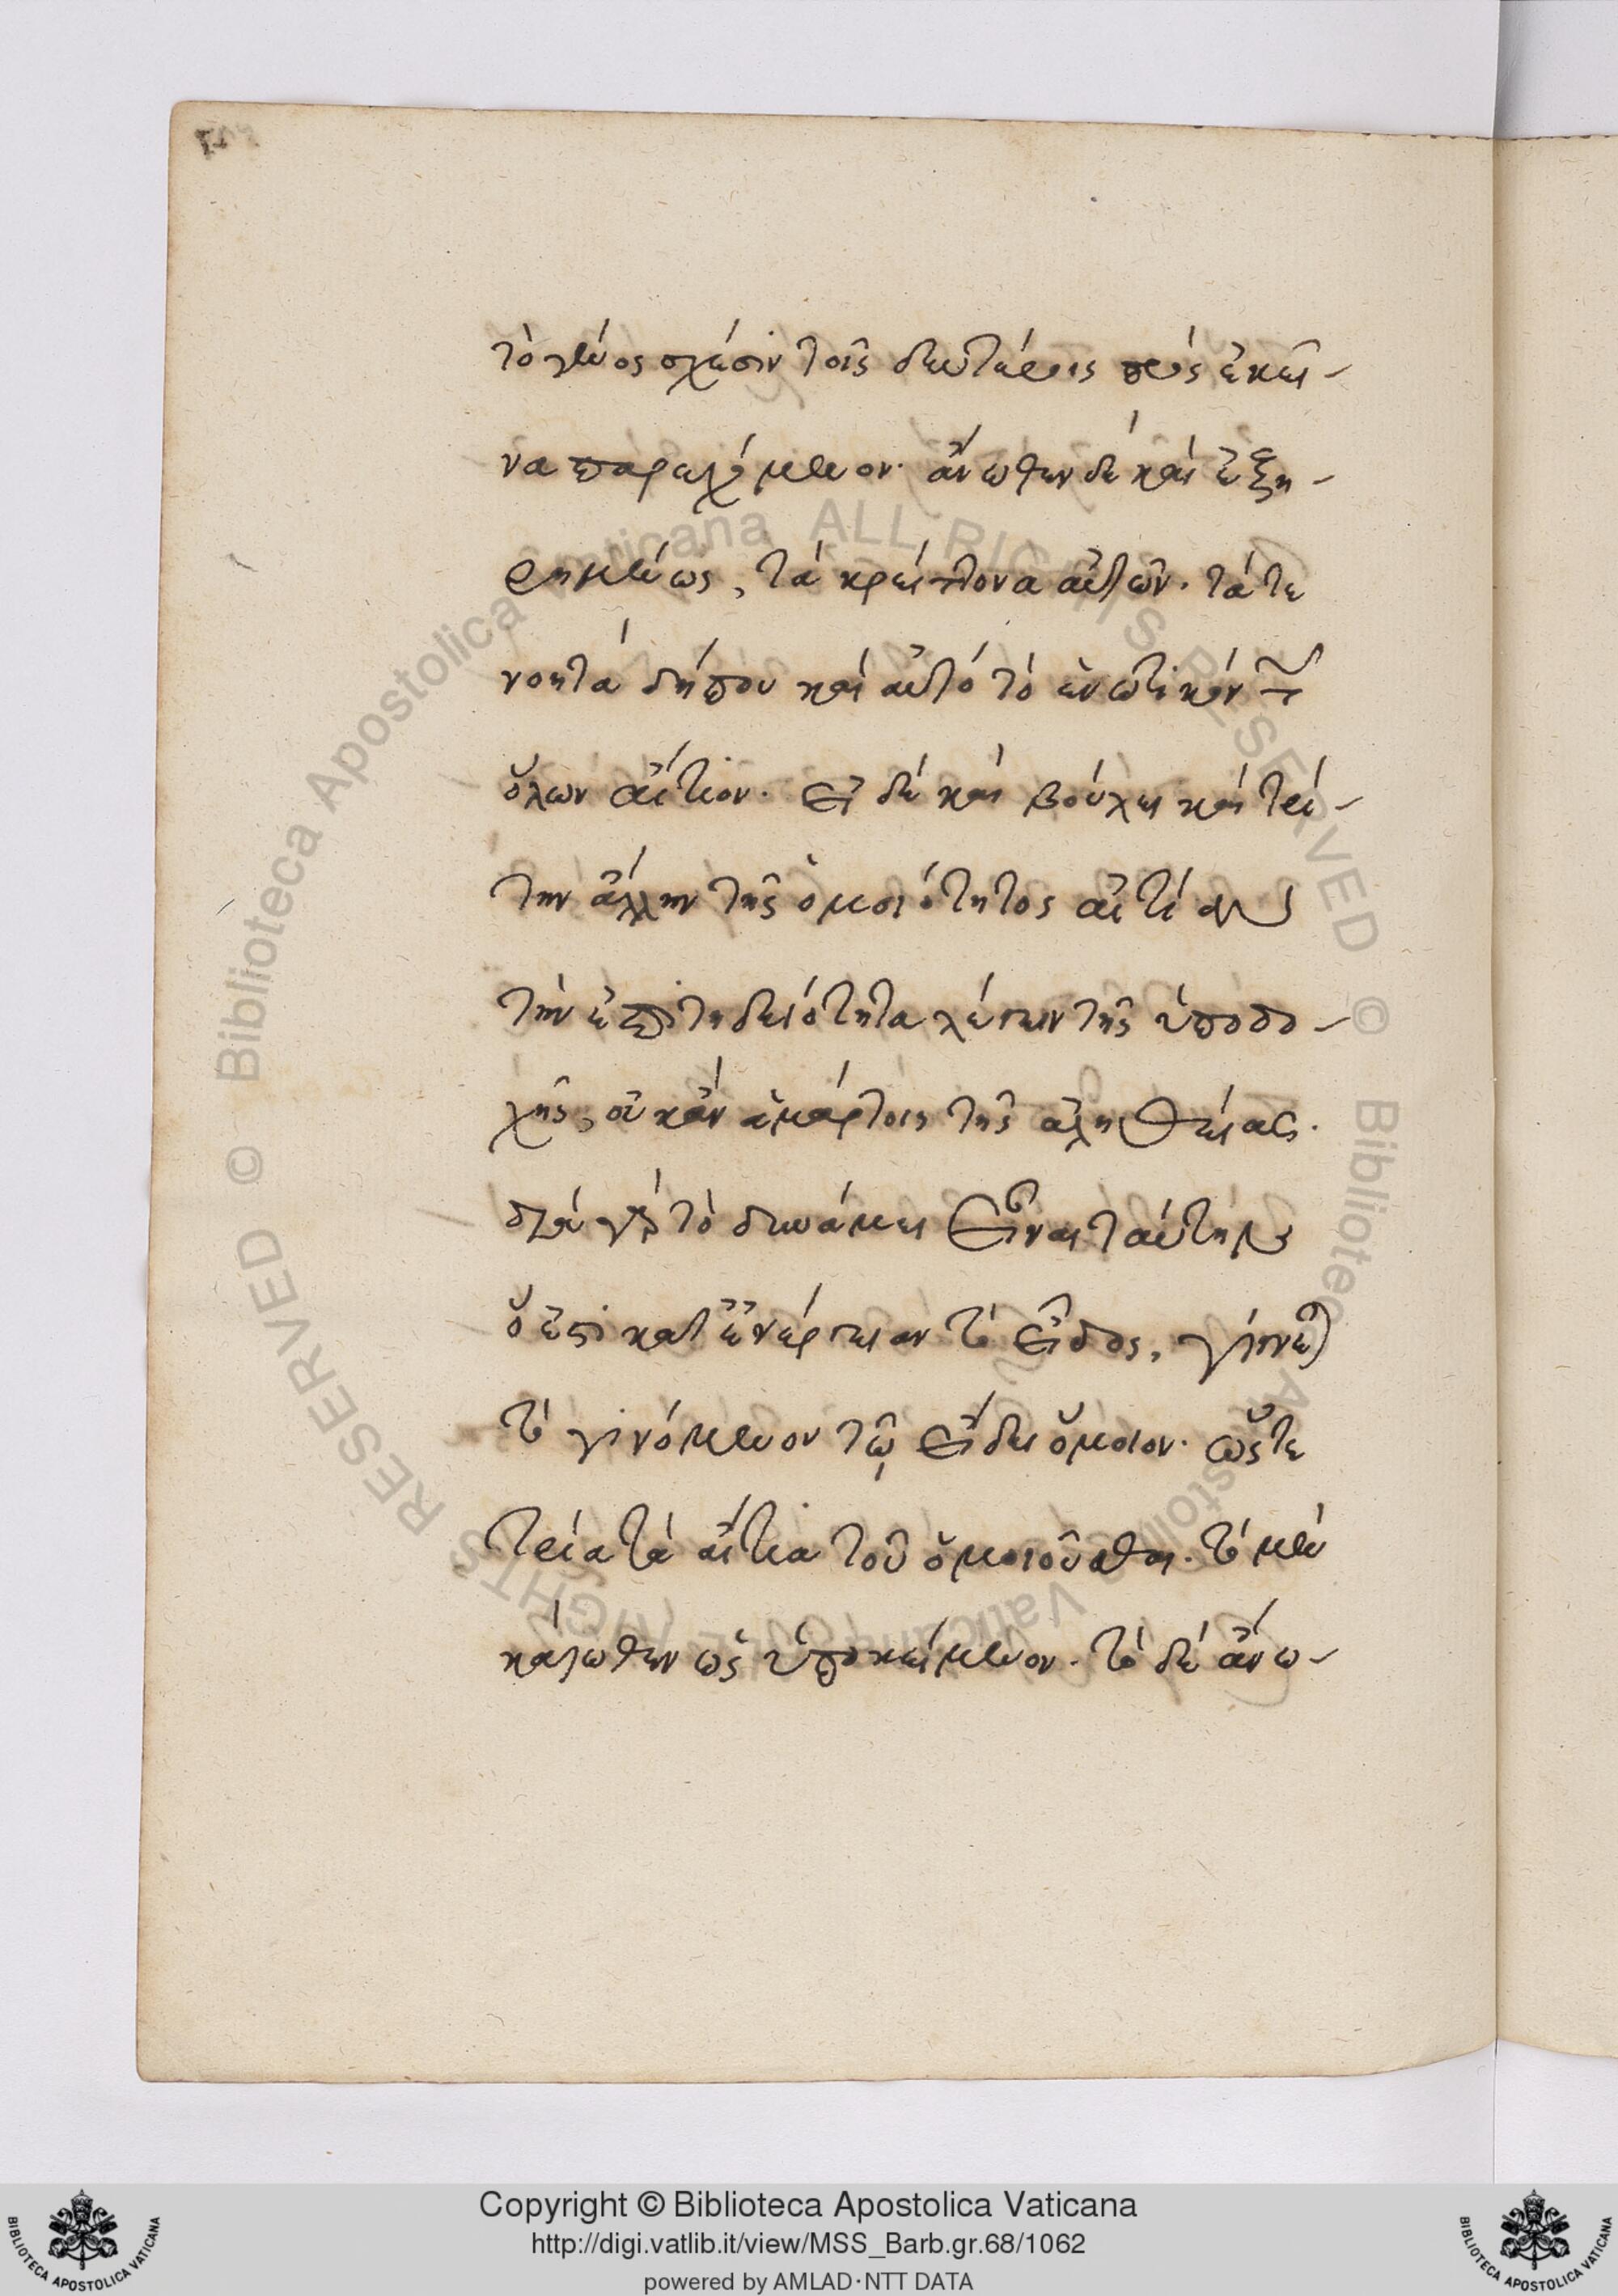 τὸ γένος σχέσιν τοῖς δευτέροις πρὸς ἐκεῖ-
να παρεχόμενον· ἄνωθεν δὲ καὶ ἐξη-
ρημένως, τὰ κρείττονα αὐτῶν· τά τε
νοητὰ δήπου καὶ αὐτὸ τὸ ἑνωτικὸν τῶν
ὅλων αἴτιον· εἰ δὲ καὶ βούλει καὶ τρί-
την ἄλλην τῆς ὁμοιότητος αἰτίαν
τὴν ἐπιτηδειότητα λέγειν τῆς ὑποδο-
χῆς, οὐκ ἂν ἁμάρτοις τῆς ἀληθείας·
διὰ γὰρ τὸ δυνάμει εἶναι ταύτην
ὅ ἐστι κατ' ἐνέργειαν τὸ εἶδος, γίγνεται
τὸ γινόμενον τῷ εἴδει ὅμοιον· ὥστε
τρία τὰ αἴτια τοῦ ὁμοιοῦσθαι· τὸ μὲν
κάτωθεν ὡς ὑποκείμενον· τὸ δὲ ἄνω-
Copyright © Biblioteca Apostolica Vaticana
http://digi.vatlib.it/view/MSS_Barb.gr.68/1062
powered by AMLAD·NTT DATA
BIBLIOTECA APOSTOLICA VATICANA
BIBLIOTECA APOSTOLICA VATICANA
© Biblioteca Apostolica Vaticana ALL RIGHTS RESERVED © Biblioteca Apostolica Vaticana ALL RIGHTS RESERVED